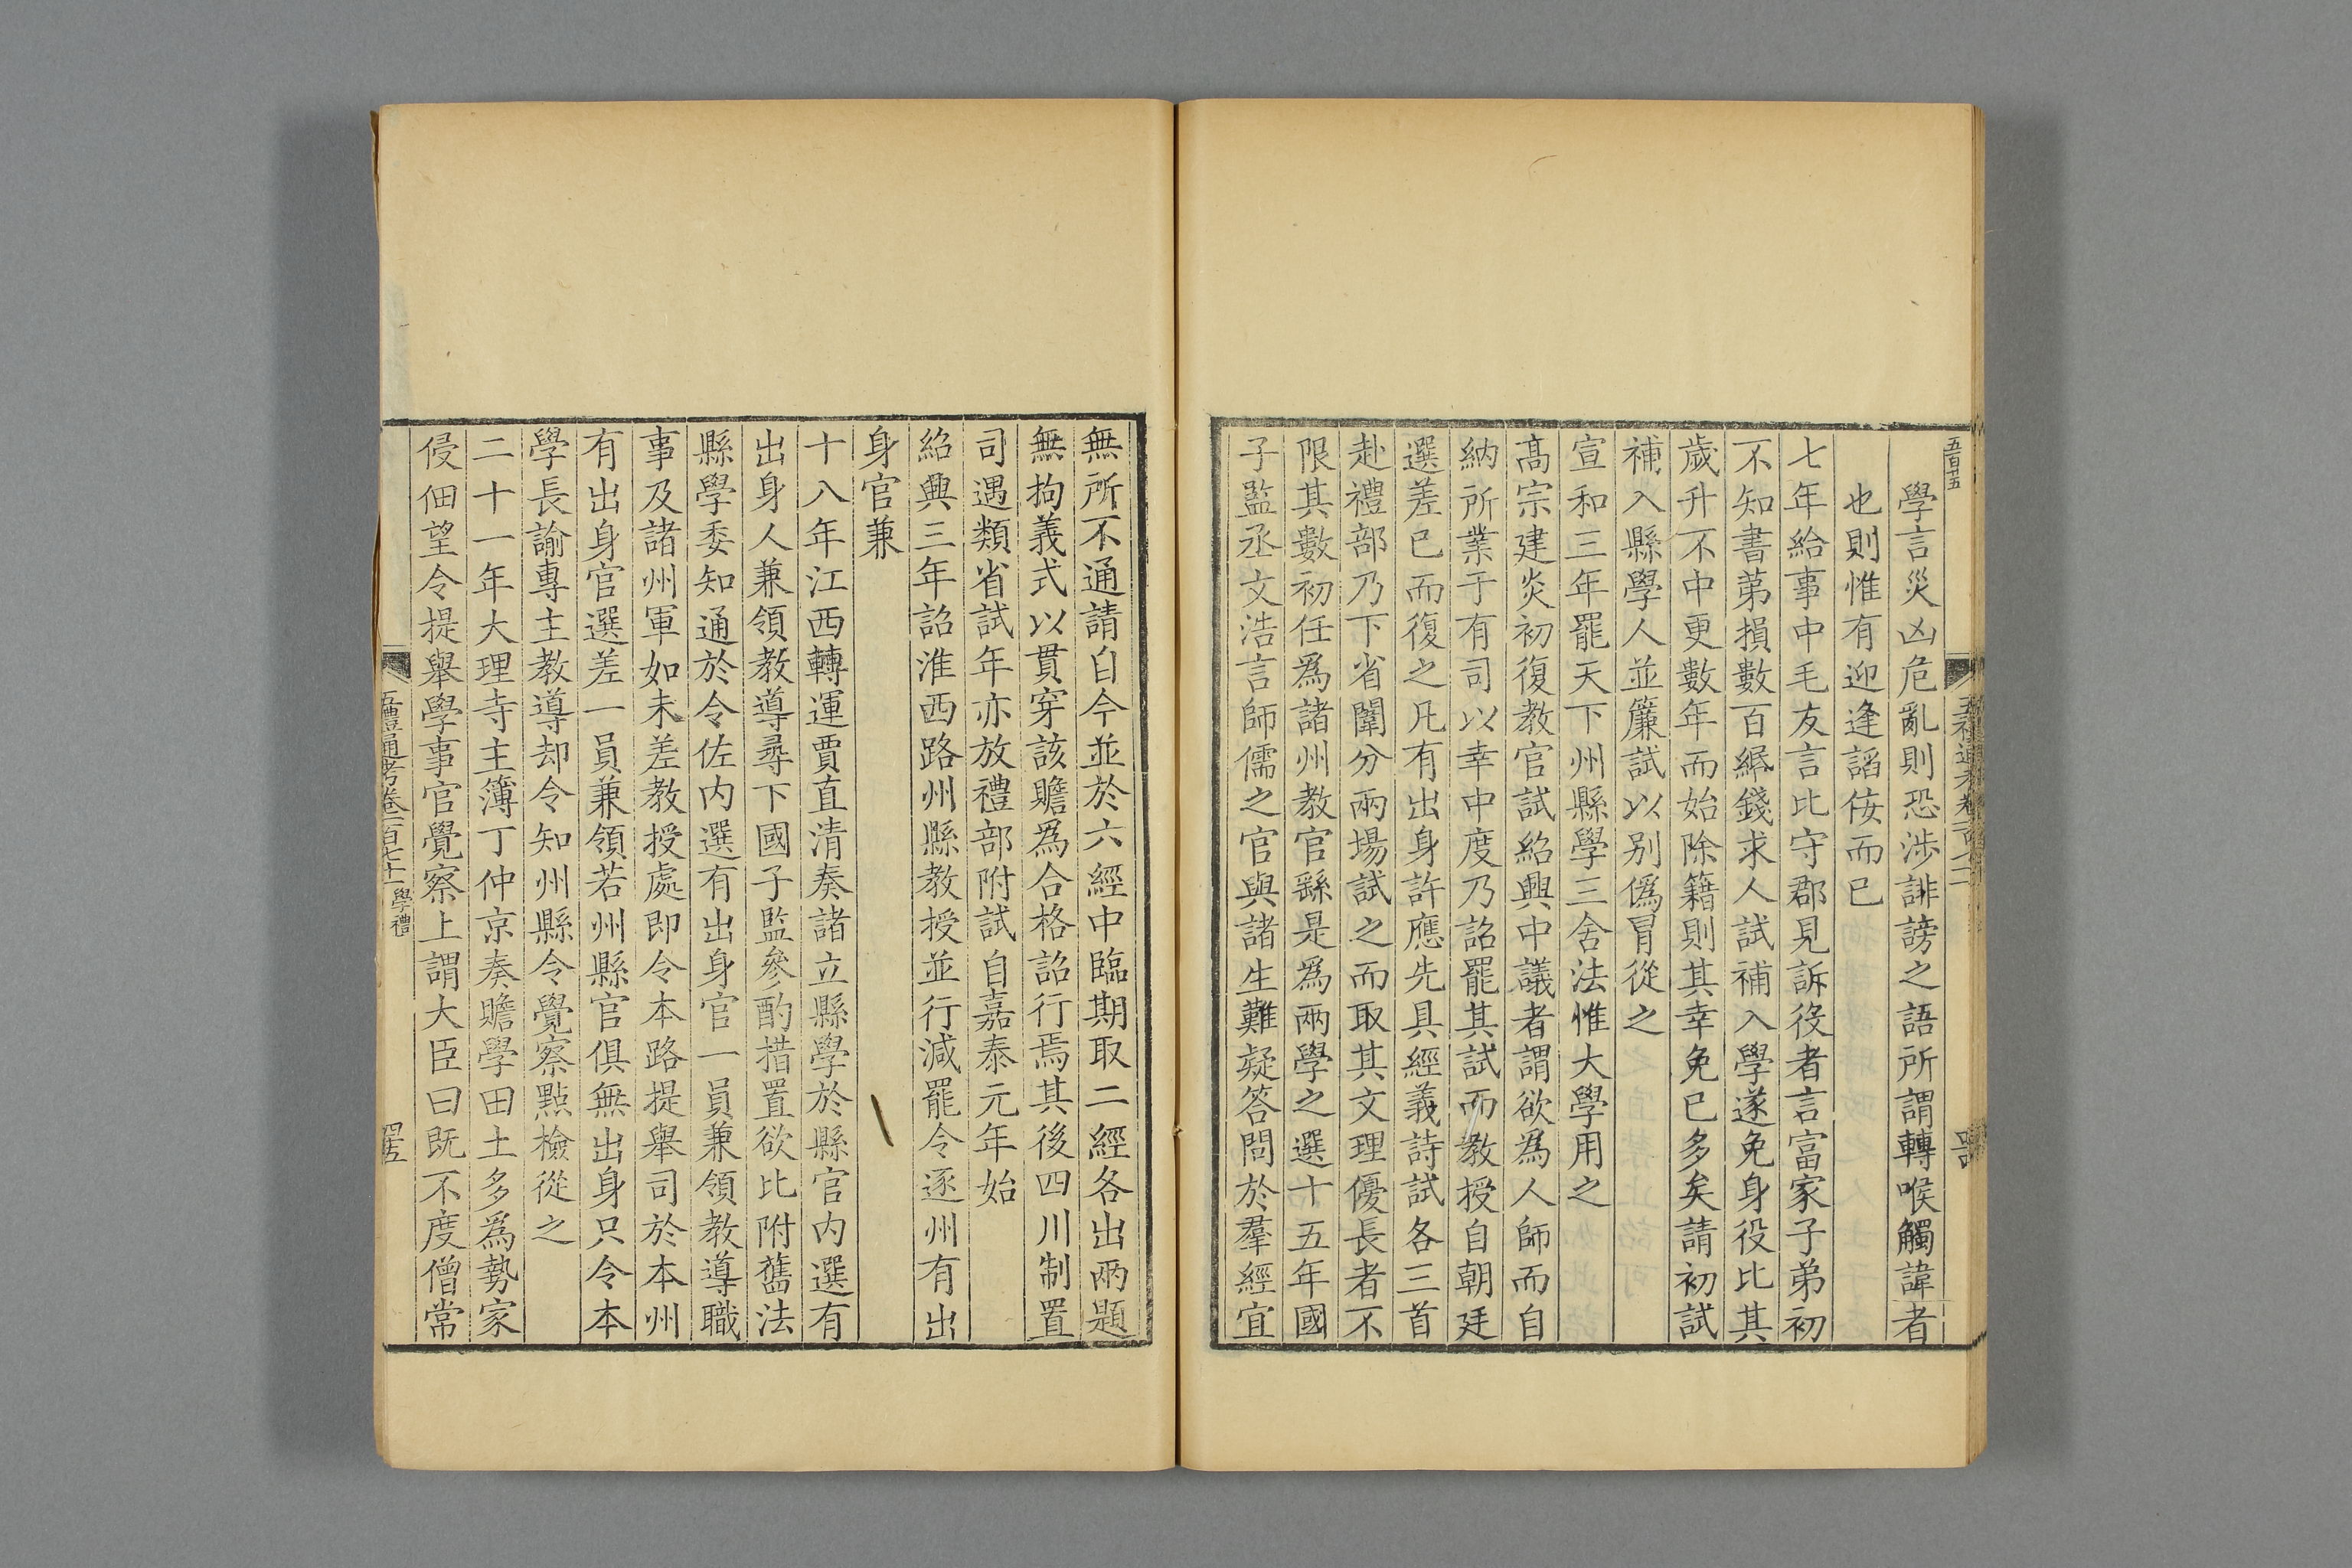 五百廿五
學言災凶危亂則恐涉誹謗之語所謂轉喉觸諱者
也則惟有迎逢諂佞而已
七年給事中毛友言比守郡見訴役者言富家子弟初
不知書苐損數百緡錢求人試補入學遂免身役比其
歲升不中更數年而始除籍則其幸免已多矣請初試
補入縣學人並簾試以别僞冒從之
宣和三年罷天下州縣學三舍法惟大學用之
髙宗建炎初復教官試紹興中議者謂欲爲人師而自
納所業于有司以幸中度乃詔罷其試而教授自朝廷
選差已而復之凡有出身許應先具經義詩試各三首
赴禮部乃下省闈分兩場試之而取其文理優長者不
限其數初任爲諸州教官繇是爲兩學之選十五年國
子監丞文浩言師儒之官與諸生難疑答問於羣經宜
無所不通請自今並於六經中臨期取二經各出兩題
無拘義式以貫穿該贍爲合格詔行焉其後四川制置
司遇類省試年亦放禮部附試自嘉泰元年始
紹興三年詔淮西路州縣教授並行減罷令逐州有出
身官兼
十八年江西轉運賈直清奏諸立縣學於縣官内選有
出身人兼領教導尋下國子監參酌措置欲比附舊法
縣學委知通於令佐内選有出身官一員兼領教導職
事及諸州軍如未差教授處即令本路提舉司於本州
有出身官選差一員兼領若州縣官俱無出身只令本
學長諭專主教導却令知州縣令覺察點檢從之
二十一年大理寺主簿丁仲京奏贍學田土多爲勢家
侵佃望令提舉學事官覺察上謂大臣曰既不度僧常
五禮通考卷一百七十一 學禮